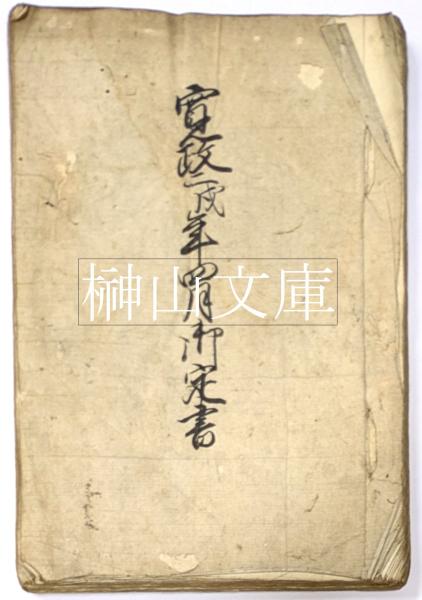 寛政二戌年四月御定書
榊山文庫